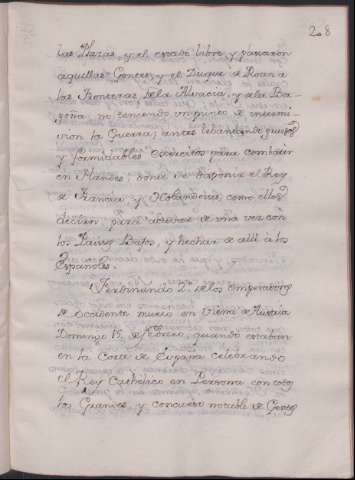 208
las Plazas, y el estado libre, y pasaron
aquellas Gentes, y el Duque de Roan a
las Fronteras de la Alsacia, y de la Bor-
goña no teniendo un punto de intermi-
sion la Guerra; antes lebantando gruesos
y formidables Exercitos para combatir
en Flandes; donde se disponia el Rey
de Francia, y Holandeses, como ellos
decian para acabar de una vez con
los Paises Bajos, y hechar de alli à los
Españoles.
Ferdinando 2º. de los Emperadores
de Occidente murio en Viena de Austria
Domingo 15. de Febrero, quando estaban
en la Corte de España celebrando
el Rey Catholico en Persona con todos
los Grandes, y concurso notable de Gentes